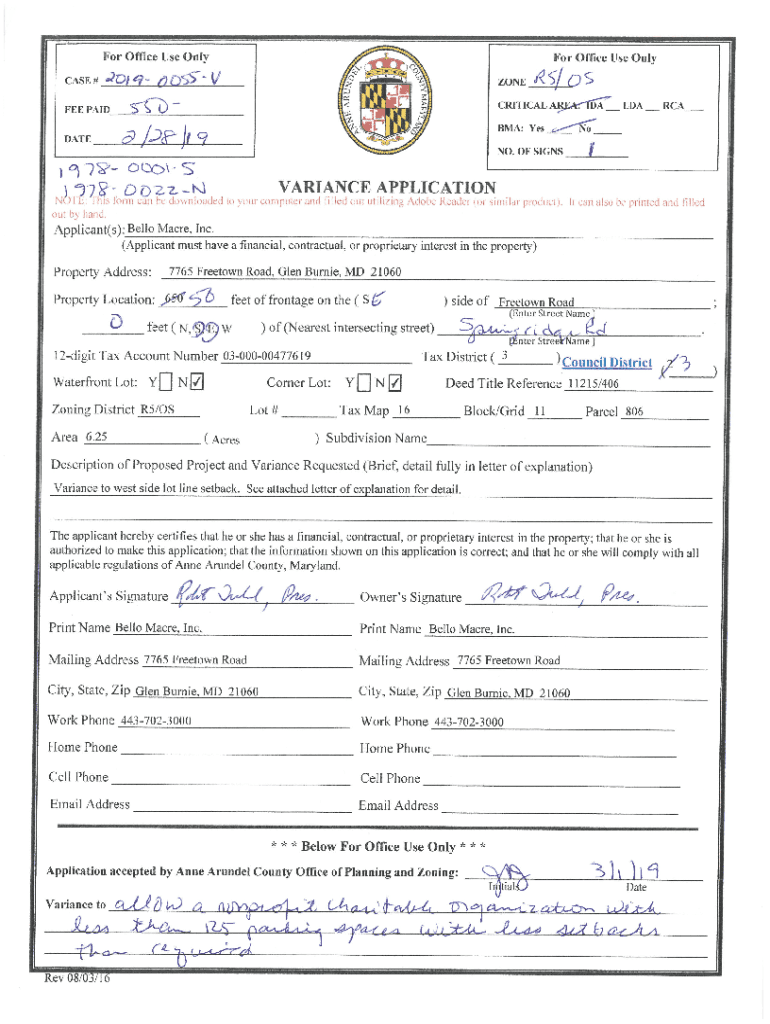 For Office Use Only
CASE # 2019-0055-V
FEE PAID 550-
DATE 2/28/19
1978-0001-S
1978-0022-N
ANNE ARUNDEL COUNTY MARYLAND
For Office Use Only
ZONE R5/OS
CRITICAL AREA: IDA ___ LDA ___ RCA ___
BMA: Yes ___ No ___
NO. OF SIGNS 1
VARIANCE APPLICATION
NOTE: This form can be downloaded to your computer and filled out utilizing Adobe Reader (or similar product). It can also be printed and filled
out by hand.
Applicant(s): Bello Macre, Inc.
(Applicant must have a financial, contractual, or proprietary interest in the property)
Property Address: 7765 Freetown Road, Glen Burnie, MD 21060
Property Location: 50 feet of frontage on the ( SE ) side of Freetown Road ;
(Enter Street Name )
0 feet ( N, W ) of (Nearest intersecting street) Springridge Rd .
(Enter Street Name )
12-digit Tax Account Number 03-000-00477619 Tax District ( 3 ) Council District 3 )
Waterfront Lot: Y N ✓ Corner Lot: Y N ✓ Deed Title Reference 11215/406
Zoning District R5/OS Lot # ___ Tax Map 16 Block/Grid 11 Parcel 806
Area 6.25 ( Acres ) Subdivision Name
Description of Proposed Project and Variance Requested (Brief, detail fully in letter of explanation)
Variance to west side lot line setback. See attached letter of explanation for detail.
The applicant hereby certifies that he or she has a financial, contractual, or proprietary interest in the property; that he or she is
authorized to make this application; that the information shown on this application is correct; and that he or she will comply with all
applicable regulations of Anne Arundel County, Maryland.
Applicant's Signature Pres. Owner's Signature Pres.
Print Name Bello Macre, Inc. Print Name Bello Macre, Inc.
Mailing Address 7765 Freetown Road Mailing Address 7765 Freetown Road
City, State, Zip Glen Burnie, MD 21060 City, State, Zip Glen Burnie, MD 21060
Work Phone 443-702-3000 Work Phone 443-702-3000
Home Phone Home Phone
Cell Phone Cell Phone
Email Address Email Address
* * * Below For Office Use Only * * *
Application accepted by Anne Arundel County Office of Planning and Zoning: 3/1/19
Initials Date
Variance to allow a nonprofit charitable organization with
less than 125 parking spaces with less setbacks
than required
Rev 08/03/16